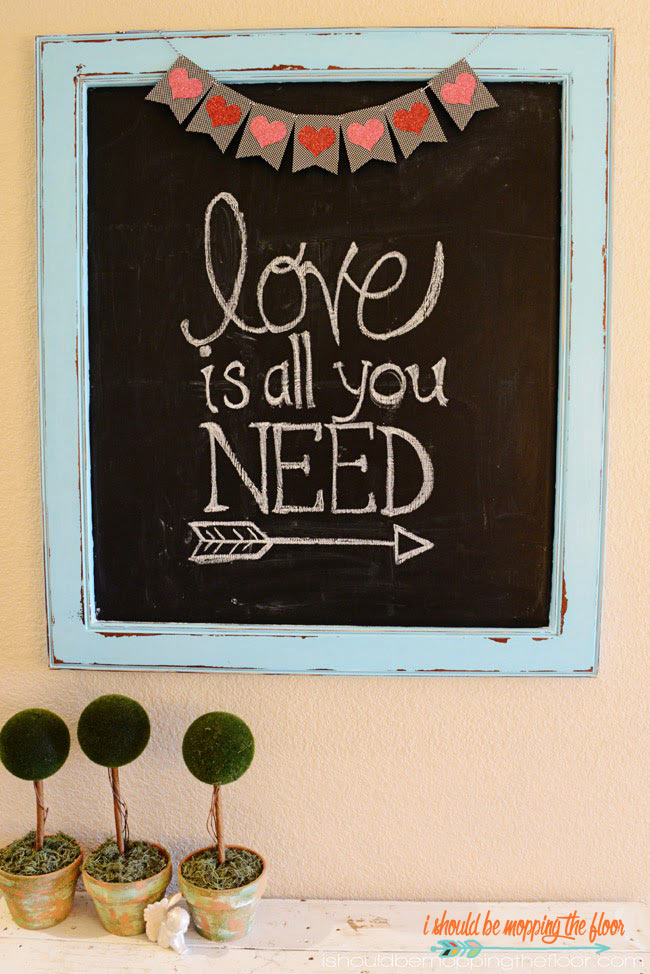 love
is all you
NEED
i should be mopping the floor
ishouldbemoppingthefloor.com